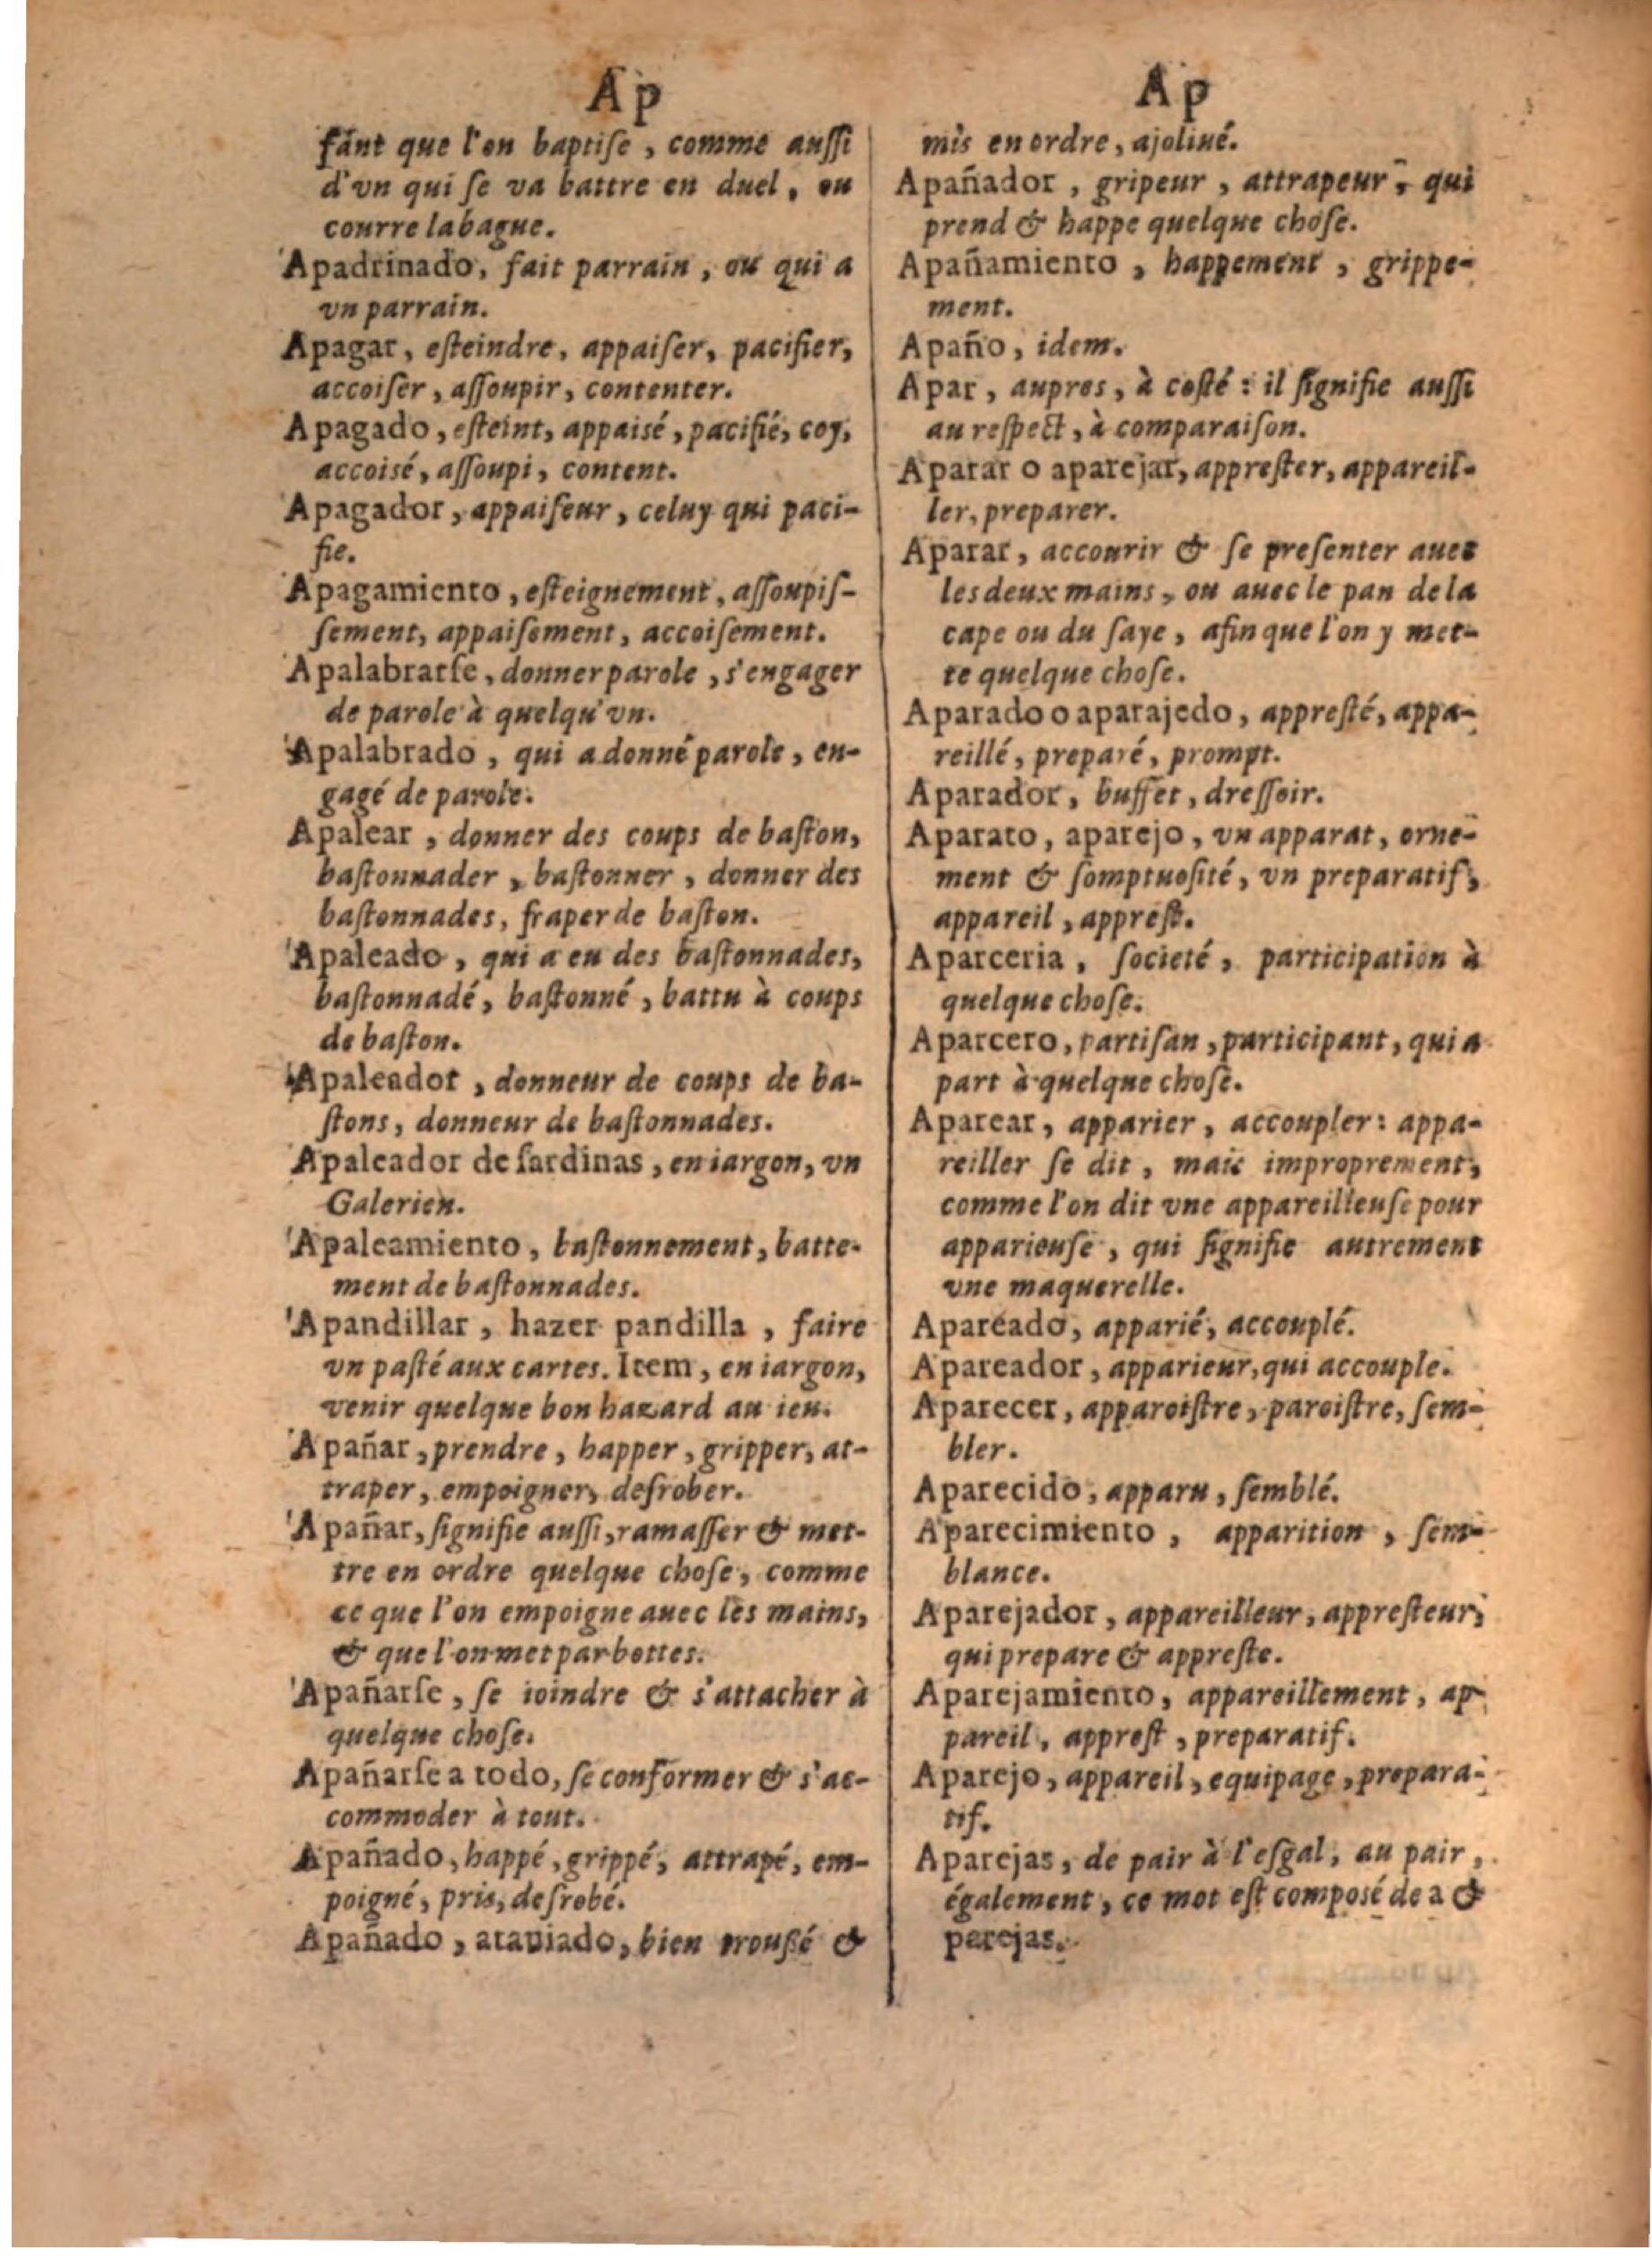 Ap
fãnt que l'on baptiſe, comme auſſi
d'vn qui ſe va battre en duel, ou
courre la bague.
Apadrinado, fait parrain, ou qui a
vn parrain.
Apagar, eſteindre, appaiſer, pacifier,
accoiſer, aſſoupir, contenter.
Apagado, eſteint, appaisé, pacifié, coy,
accoisé, aſſoupi, content.
Apagador, appaiſeur, celuy qui paci-
fie.
Apagamiento, eſteignement, aſſoupiſ-
ſement, appaiſement, accoiſement.
Apalabrarſe, donner parole, s'engager
de parole à quelqu'vn.
Apalabrado, qui a donné parole, en-
gagé de parole.
Apalear, donner des coups de baſton,
baſtonnader, baſtonner, donner des
baſtonnades, fraper de baſton.
Apaleado, qui a eu des baſtonnades,
baſtonnadé, baſtonné, battu à coups
de baſton.
Apaleador, donneur de coups de ba-
ſtons, donneur de baſtonnades.
Apaleador de ſardinas, en iargon, vn
Galerien.
Apaleamiento, baſtonnement, batte-
ment de baſtonnades.
Apandillar, hazer pandilla, faire
vn paſté aux cartes. Item, en iargon,
venir quelque bon hazard au ieu.
Apañar, prendre, happer, gripper, at-
traper, empoigner, deſrober.
Apañar, ſignifie auſſi, ramaſſer & met-
tre en ordre quelque choſe, comme
ce que l'on empoigne auec les mains,
& que l'on met par bottes.
Apañarſe, ſe ioindre & s'attacher à
quelque choſe.
Apañarſe a todo, ſe conformer & s'ac-
commoder à tout.
Apañado, happé, grippé, attrapé, em-
poigné, pris, deſrobé.
Apañado, atauiado, bien troußé &
Ap
mis en ordre, ajoliué.
Apañador, gripeur, attrapeur, qui
prend & happe quelque choſe.
Apañamiento, happement, grippe-
ment.
Apaño, idem.
Apar, aupres, à coſté : il ſignifie auſſi
au reſpect, à comparaiſon.
Aparar o aparejar, appreſter, appareil-
ler, preparer.
Aparar, accourir & ſe preſenter auec
les deux mains, ou auec le pan de la
cape ou du ſaye, afin que l'on y met-
te quelque choſe.
Aparado o aparajedo, appreſté, appa-
reillé, preparé, prompt.
Aparador, buffet, dreſſoir.
Aparato, aparejo, vn apparat, orne-
ment & ſomptuoſité, vn preparatif,
appareil, appreſt.
Aparceria, ſocieté, participation à
quelque choſe.
Aparcero, partiſan, participant, qui a
part à quelque choſe.
Aparear, apparier, accoupler : appa-
reiller ſe dit, mais improprement,
comme l'on dit vne appareilleuſe pour
apparieuſe, qui ſignifie autrement
vne maquerelle.
Apareado, apparié, accouplé.
Apareador, apparieur, qui accouple.
Aparecer, apparoiſtre, paroiſtre, ſem-
bler.
Aparecido, apparu, ſemblé.
Aparecimiento, apparition, ſem-
blance.
Aparejador, appareilleur, appreſteur,
qui prepare & appreſte.
Aparejamiento, appareillement, ap-
pareil, appreſt, preparatif.
Aparejo, appareil, equipage, prepara-
tif.
Aparejas, de pair à l'eſgal, au pair,
également, ce mot eſt composé de a &
parejas.